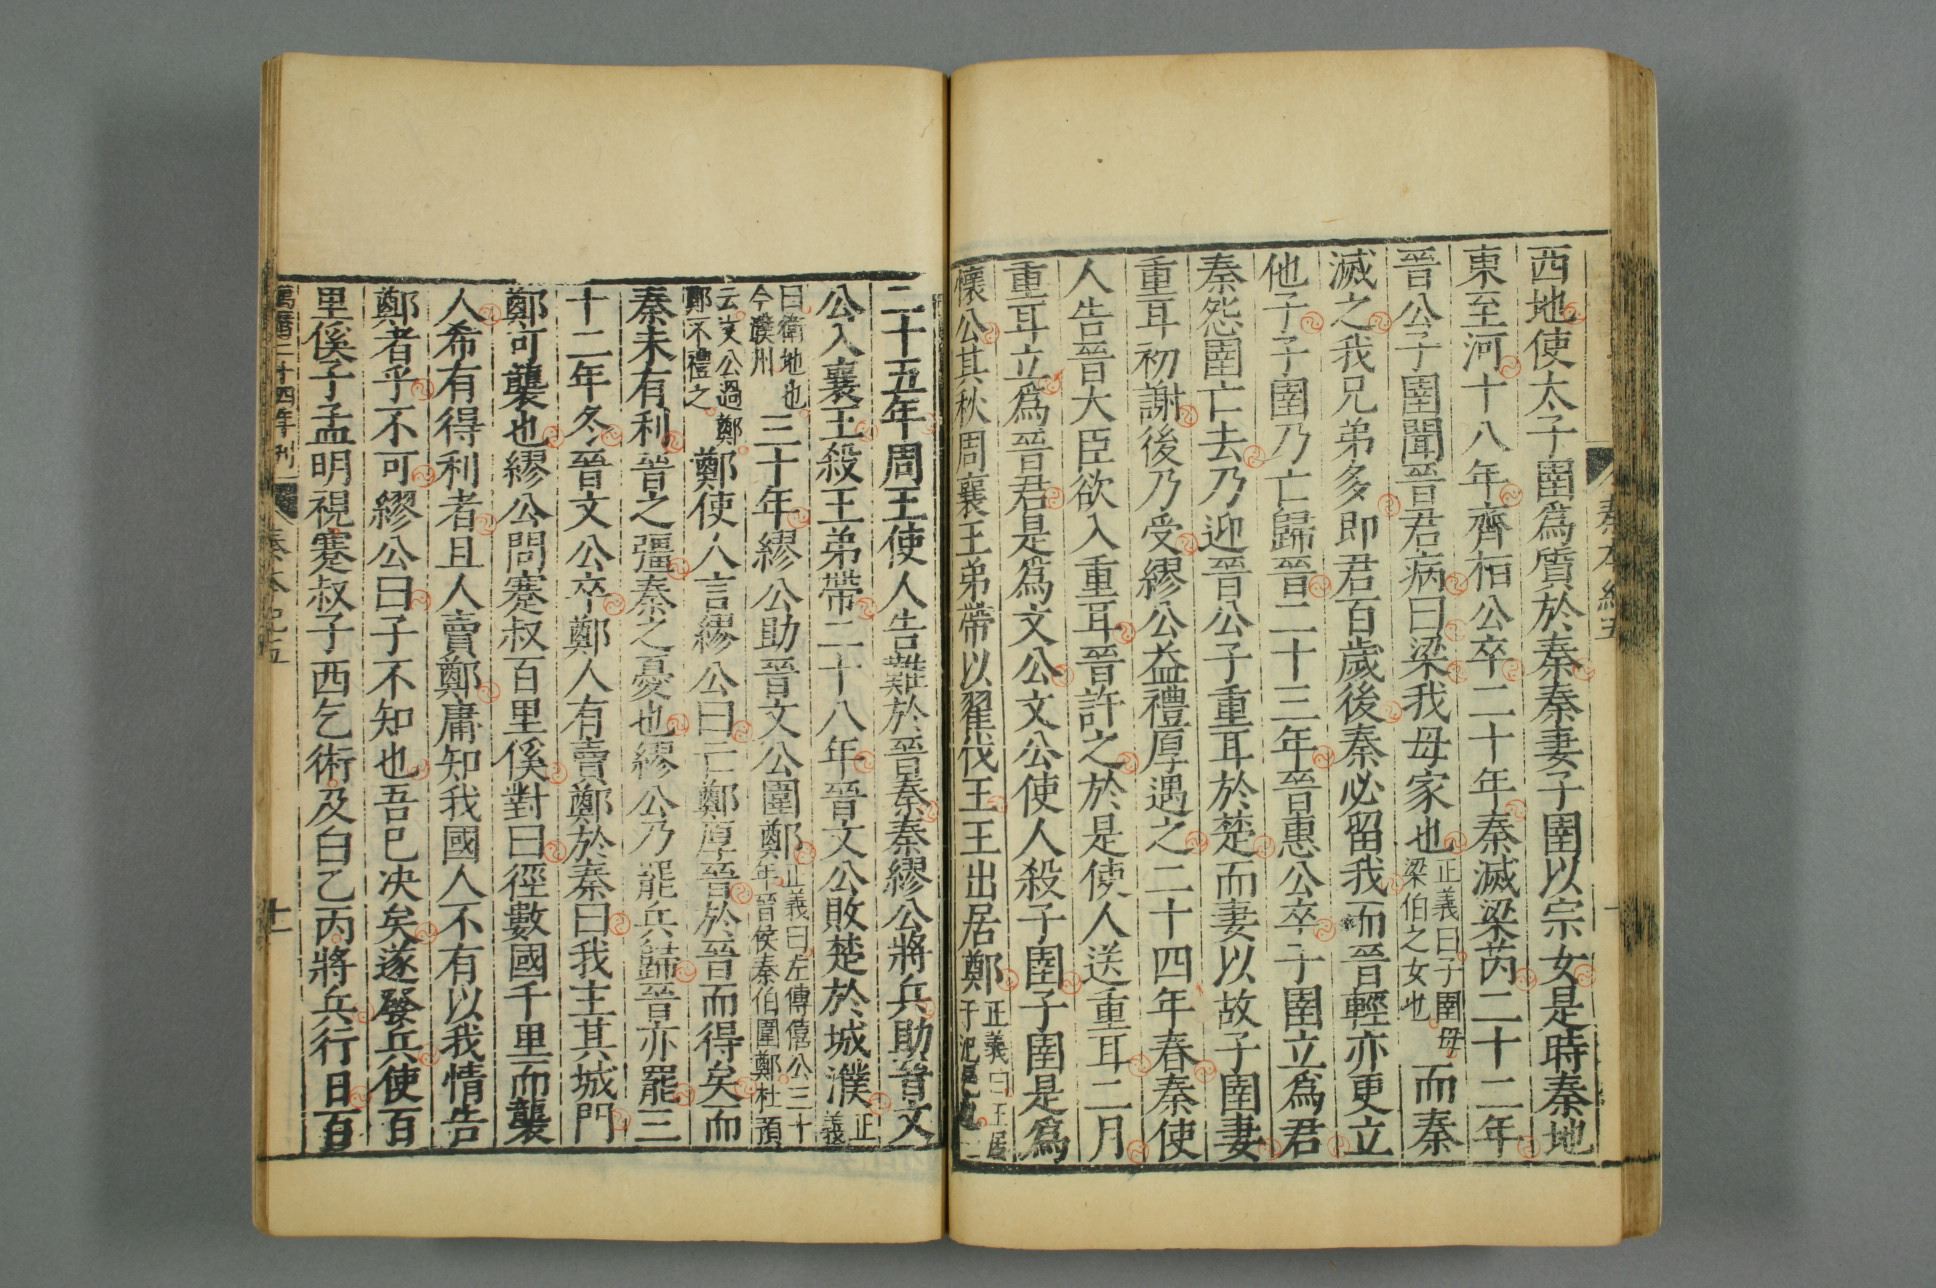 秦本紀五
西地使太子圉爲質於秦秦妻子圉以宗女是時秦地
東至河十八年齊桓公卒二十年秦滅梁芮二十二年
晉公子圉聞晉君病曰梁我母家也正義曰子圉母梁伯之女也而秦
滅之我兄弟多即君百歲後秦必留我而晉輕亦更立
他子子圉乃亡歸晉二十三年晉惠公卒子圉立爲君
秦怨圉亡去乃迎晉公子重耳於楚而妻以故子圉妻
重耳初謝後乃受繆公益禮厚遇之二十四年春秦使
人告晉大臣欲入重耳晉許之於是使人送重耳二月
重耳立爲晉君是爲文公文公使人殺子圉子圉是爲
懷公其秋周襄王弟帶以翟伐王王出居鄭正義曰王居于氾邑也
二十五年周王使人告難於晉秦秦繆公將兵助晉文
公入襄王殺王弟帶二十八年晉文公敗楚於城濮正義
曰衛地也今濮州三十年繆公助晉文公圍鄭正義曰左傳僖公三十年晉侯秦伯圍鄭杜預
云文公過鄭鄭不禮之鄭使人言繆公曰亡鄭厚晉於晉而得矣而
秦未有利晉之彊秦之憂也繆公乃罷兵歸晉亦罷三
十二年冬晉文公卒鄭人有賣鄭於秦曰我主其城門
鄭可襲也繆公問蹇叔百里傒對曰徑數國千里而襲
人希有得利者且人賣鄭庸知我國人不有以我情告
鄭者乎不可繆公曰子不知也吾已决矣遂發兵使百
里傒子孟明視蹇叔子西乞術及白乙丙將兵行日百
萬曆二十四年刊
秦本紀五
十一